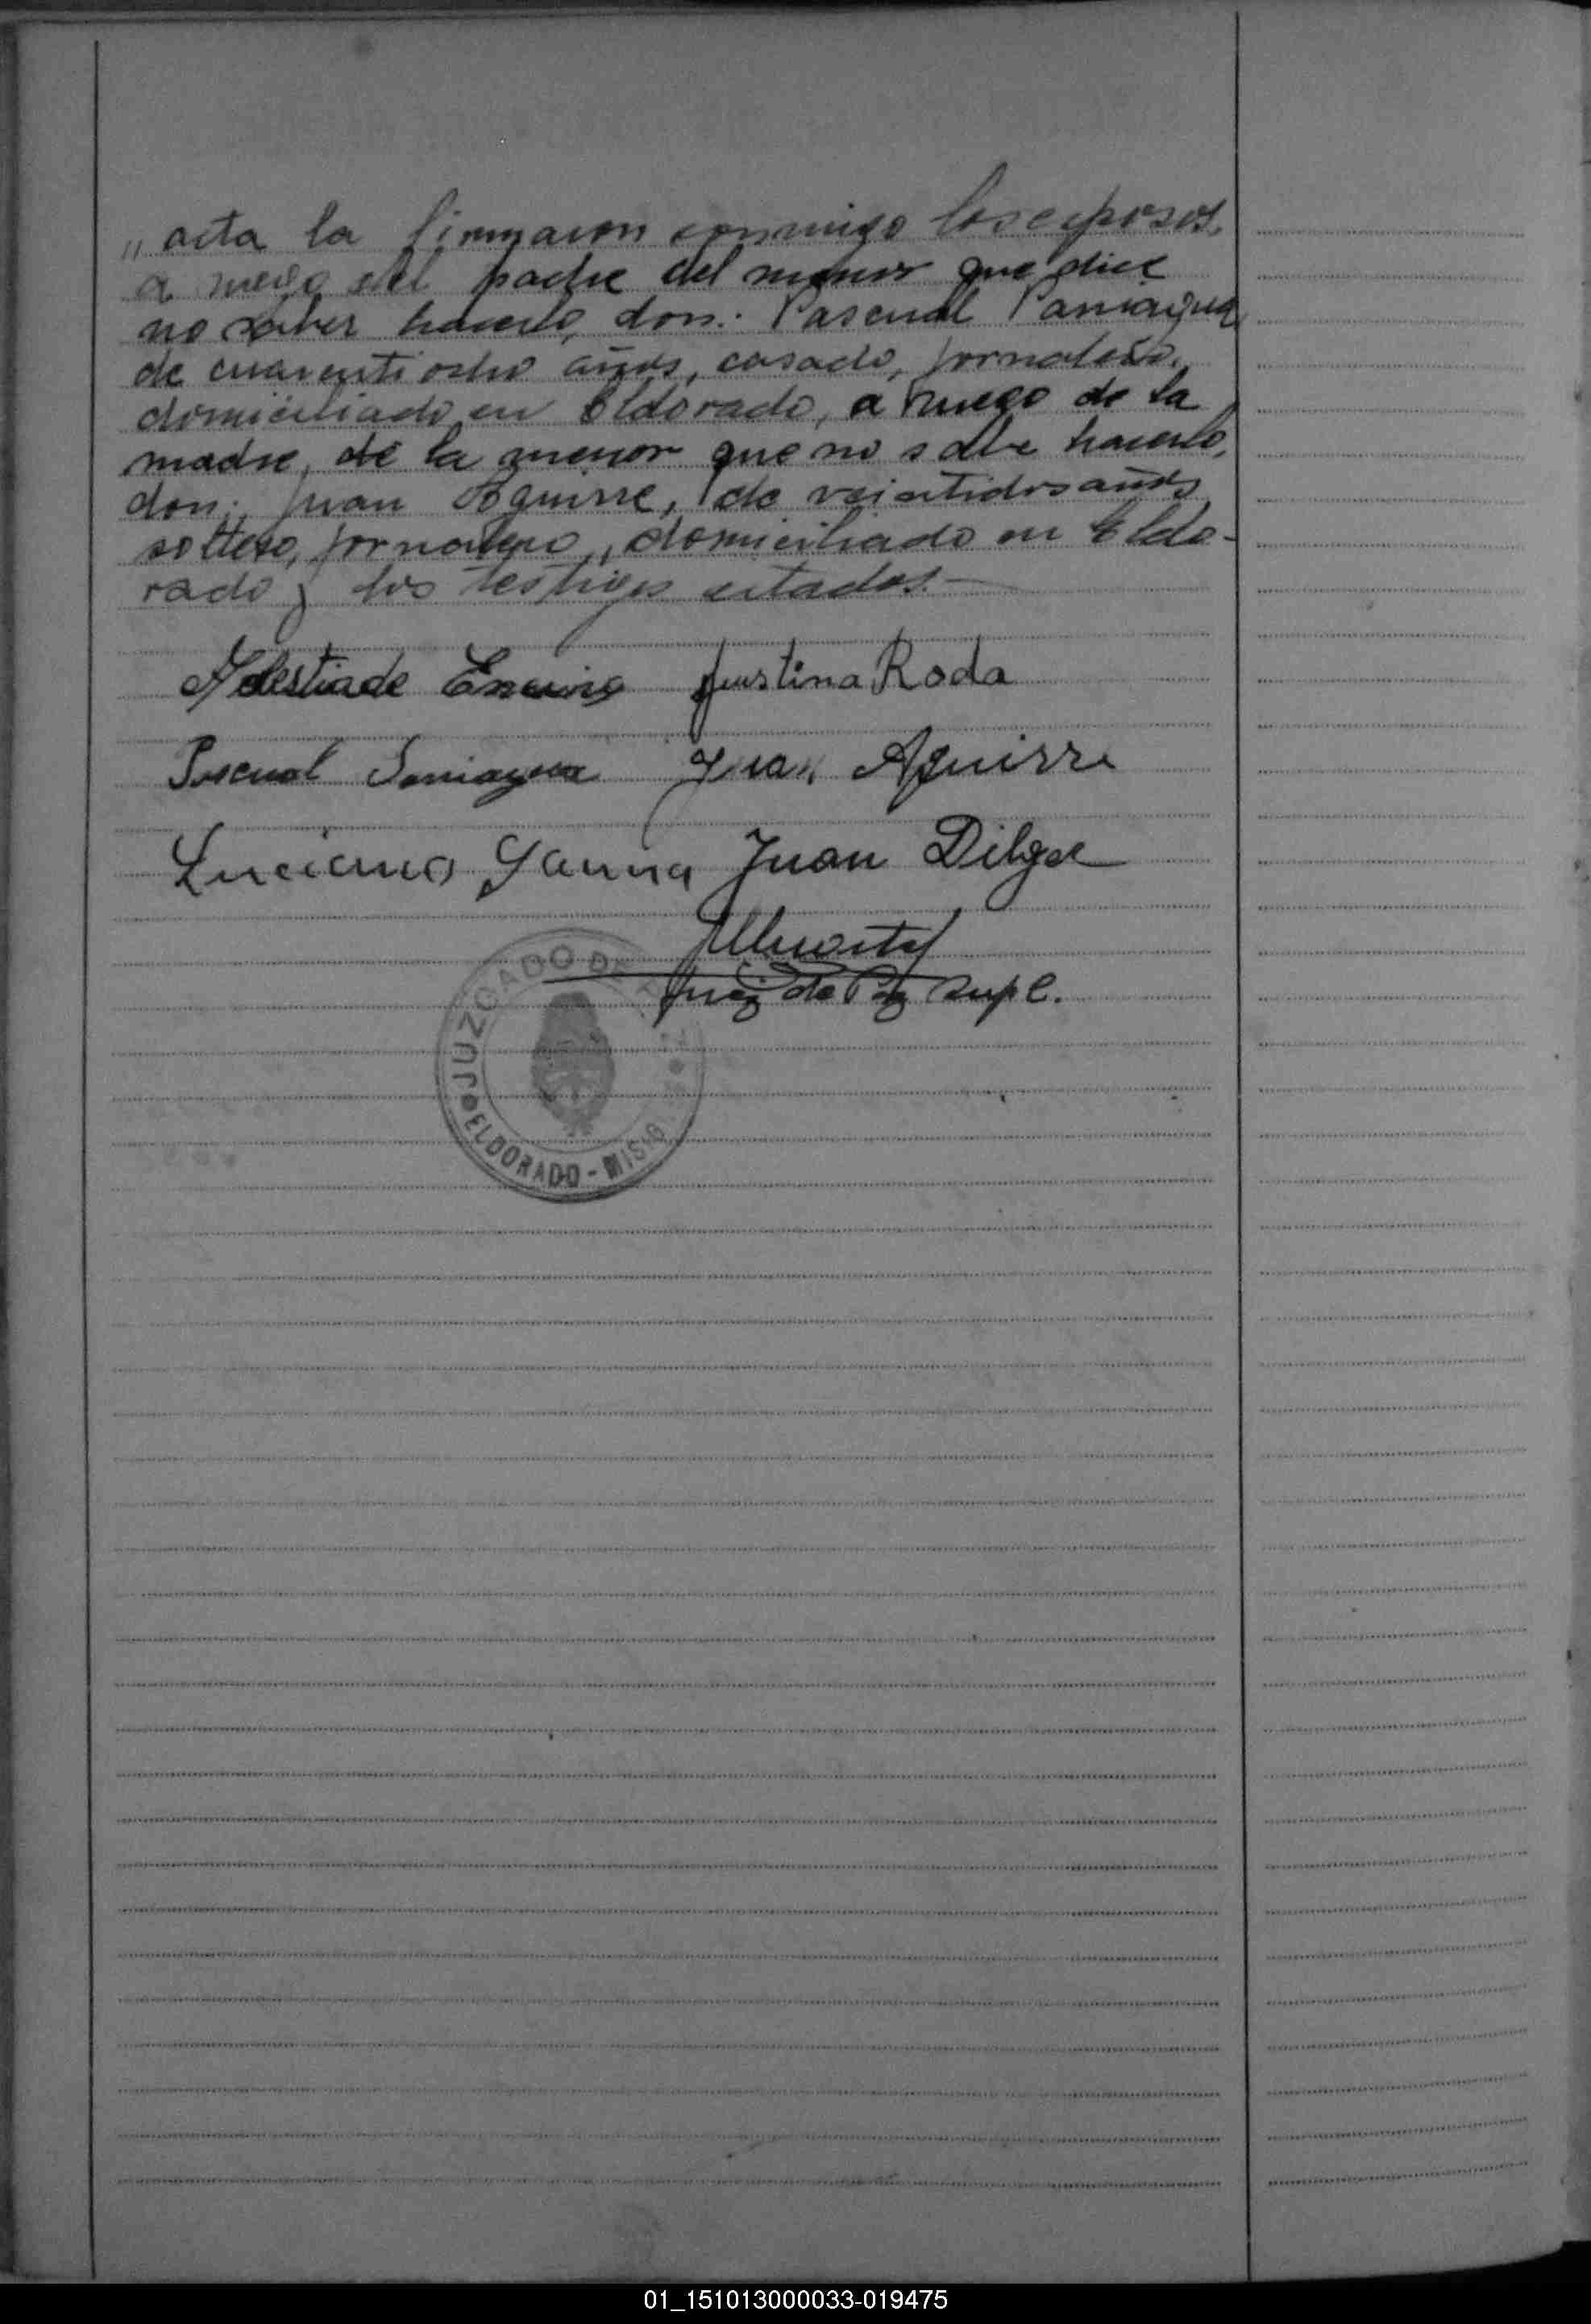 „ acta la firmaron conmigo los esposos,
a ruego del padre del menor que dice
no saber hacerlo, don: Pascual Paniagua,
de cuarentiocho años, casado, jornalero,
domiciliado en Eldorado, a ruego de la
madre, de la menor que no sabe hacerlo,
don: Juan Aguirre, de veintidos años
soltero, jornalero, domiciliado en Eldo-
rado y los testigos citados.—
Justina Roda
Pascual Paniagua Juan Aguirre
Luciano Juan Dilger
Juez de Paz Supl.
JUZGADO DE
ELDORADO - MISIO
01_151013000033-019475